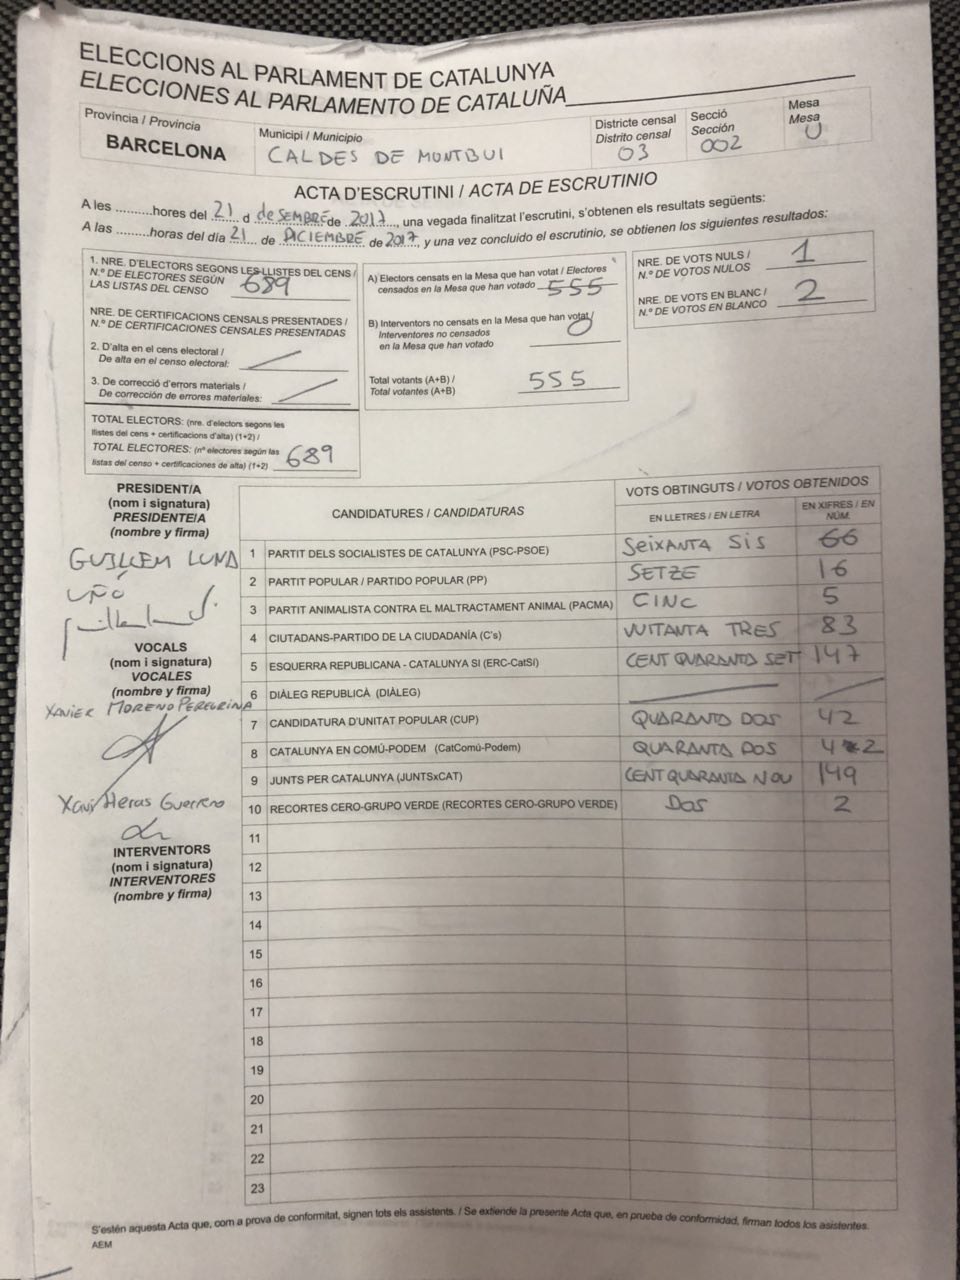 ELECCIONS AL PARLAMENT DE CATALUNYA
ELECCIONES AL PARLAMENTO DE CATALUÑA
Província / Provincia
BARCELONA
Municipi / Municipio
CALDES DE MONTBUI
Districte censal
Distrito censal
03
Secció
Sección
002
Mesa
Mesa
U
ACTA D'ESCRUTINI / ACTA DE ESCRUTINIO
A les ..........hores del 21 d deSEMBRE de 2017, una vegada finalitzat l'escrutini, s'obtenen els resultats següents:
A las ..........horas del día 21 de DICIEMBRE de 2017, y una vez concluido el escrutinio, se obtienen los siguientes resultados:
1. NRE. D'ELECTORS SEGONS LES LLISTES DEL CENS /
N.º DE ELECTORES SEGÚN
LAS LISTAS DEL CENSO 689
NRE. DE CERTIFICACIONS CENSALS PRESENTADES /
N.º DE CERTIFICACIONES CENSALES PRESENTADAS
2. D'alta en el cens electoral /
De alta en el censo electoral:
3. De correcció d'errors materials /
De corrección de errores materiales:
TOTAL ELECTORS: (nre. d'electors segons les
llistes del cens + certificacions d'alta) (1+2) /
TOTAL ELECTORES: (nº electores según las
listas del censo + certificaciones de alta) (1+2) 689
A) Electors censats en la Mesa que han votat / Electores
censados en la Mesa que han votado 555
B) Interventors no censats en la Mesa que han votat/
Interventores no censados
en la Mesa que han votado 0
Total votants (A+B) /
Total votantes (A+B) 555
NRE. DE VOTS NULS /
N.º DE VOTOS NULOS 1
NRE. DE VOTS EN BLANC /
N.º DE VOTOS EN BLANCO 2
PRESIDENT/A
(nom i signatura)
PRESIDENTE/A
(nombre y firma)
GUILLEM LUNA
UÑÓ
VOCALS
(nom i signatura)
VOCALES
(nombre y firma)
XAVIER MORENO PEREGRINA
Xavi Heras Guerrero
INTERVENTORS
(nom i signatura)
INTERVENTORES
(nombre y firma)
CANDIDATURES / CANDIDATURAS
VOTS OBTINGUTS / VOTOS OBTENIDOS
EN LLETRES / EN LETRA
EN XIFRES / EN NÚM.
1 PARTIT DELS SOCIALISTES DE CATALUNYA (PSC-PSOE) SEIXANTA SIS 66
2 PARTIT POPULAR / PARTIDO POPULAR (PP) SETZE 16
3 PARTIT ANIMALISTA CONTRA EL MALTRACTAMENT ANIMAL (PACMA) CINC 5
4 CIUTADANS-PARTIDO DE LA CIUDADANÍA (C's) VUITANTA TRES 83
5 ESQUERRA REPUBLICANA - CATALUNYA SI (ERC-CatSí) CENT QUARANTA SET 147
6 DIÀLEG REPUBLICÀ (DIÀLEG)
7 CANDIDATURA D'UNITAT POPULAR (CUP) QUARANTA DOS 42
8 CATALUNYA EN COMÚ-PODEM (CatComú-Podem) QUARANTA DOS 42
9 JUNTS PER CATALUNYA (JUNTSxCAT) CENT QUARANTA NOU 149
10 RECORTES CERO-GRUPO VERDE (RECORTES CERO-GRUPO VERDE) DOS 2
11
12
13
14
15
16
17
18
19
20
21
22
23
S'estén aquesta Acta que, com a prova de conformitat, signen tots els assistents. / Se extiende la presente Acta que, en prueba de conformidad, firman todos los asistentes.
AEM